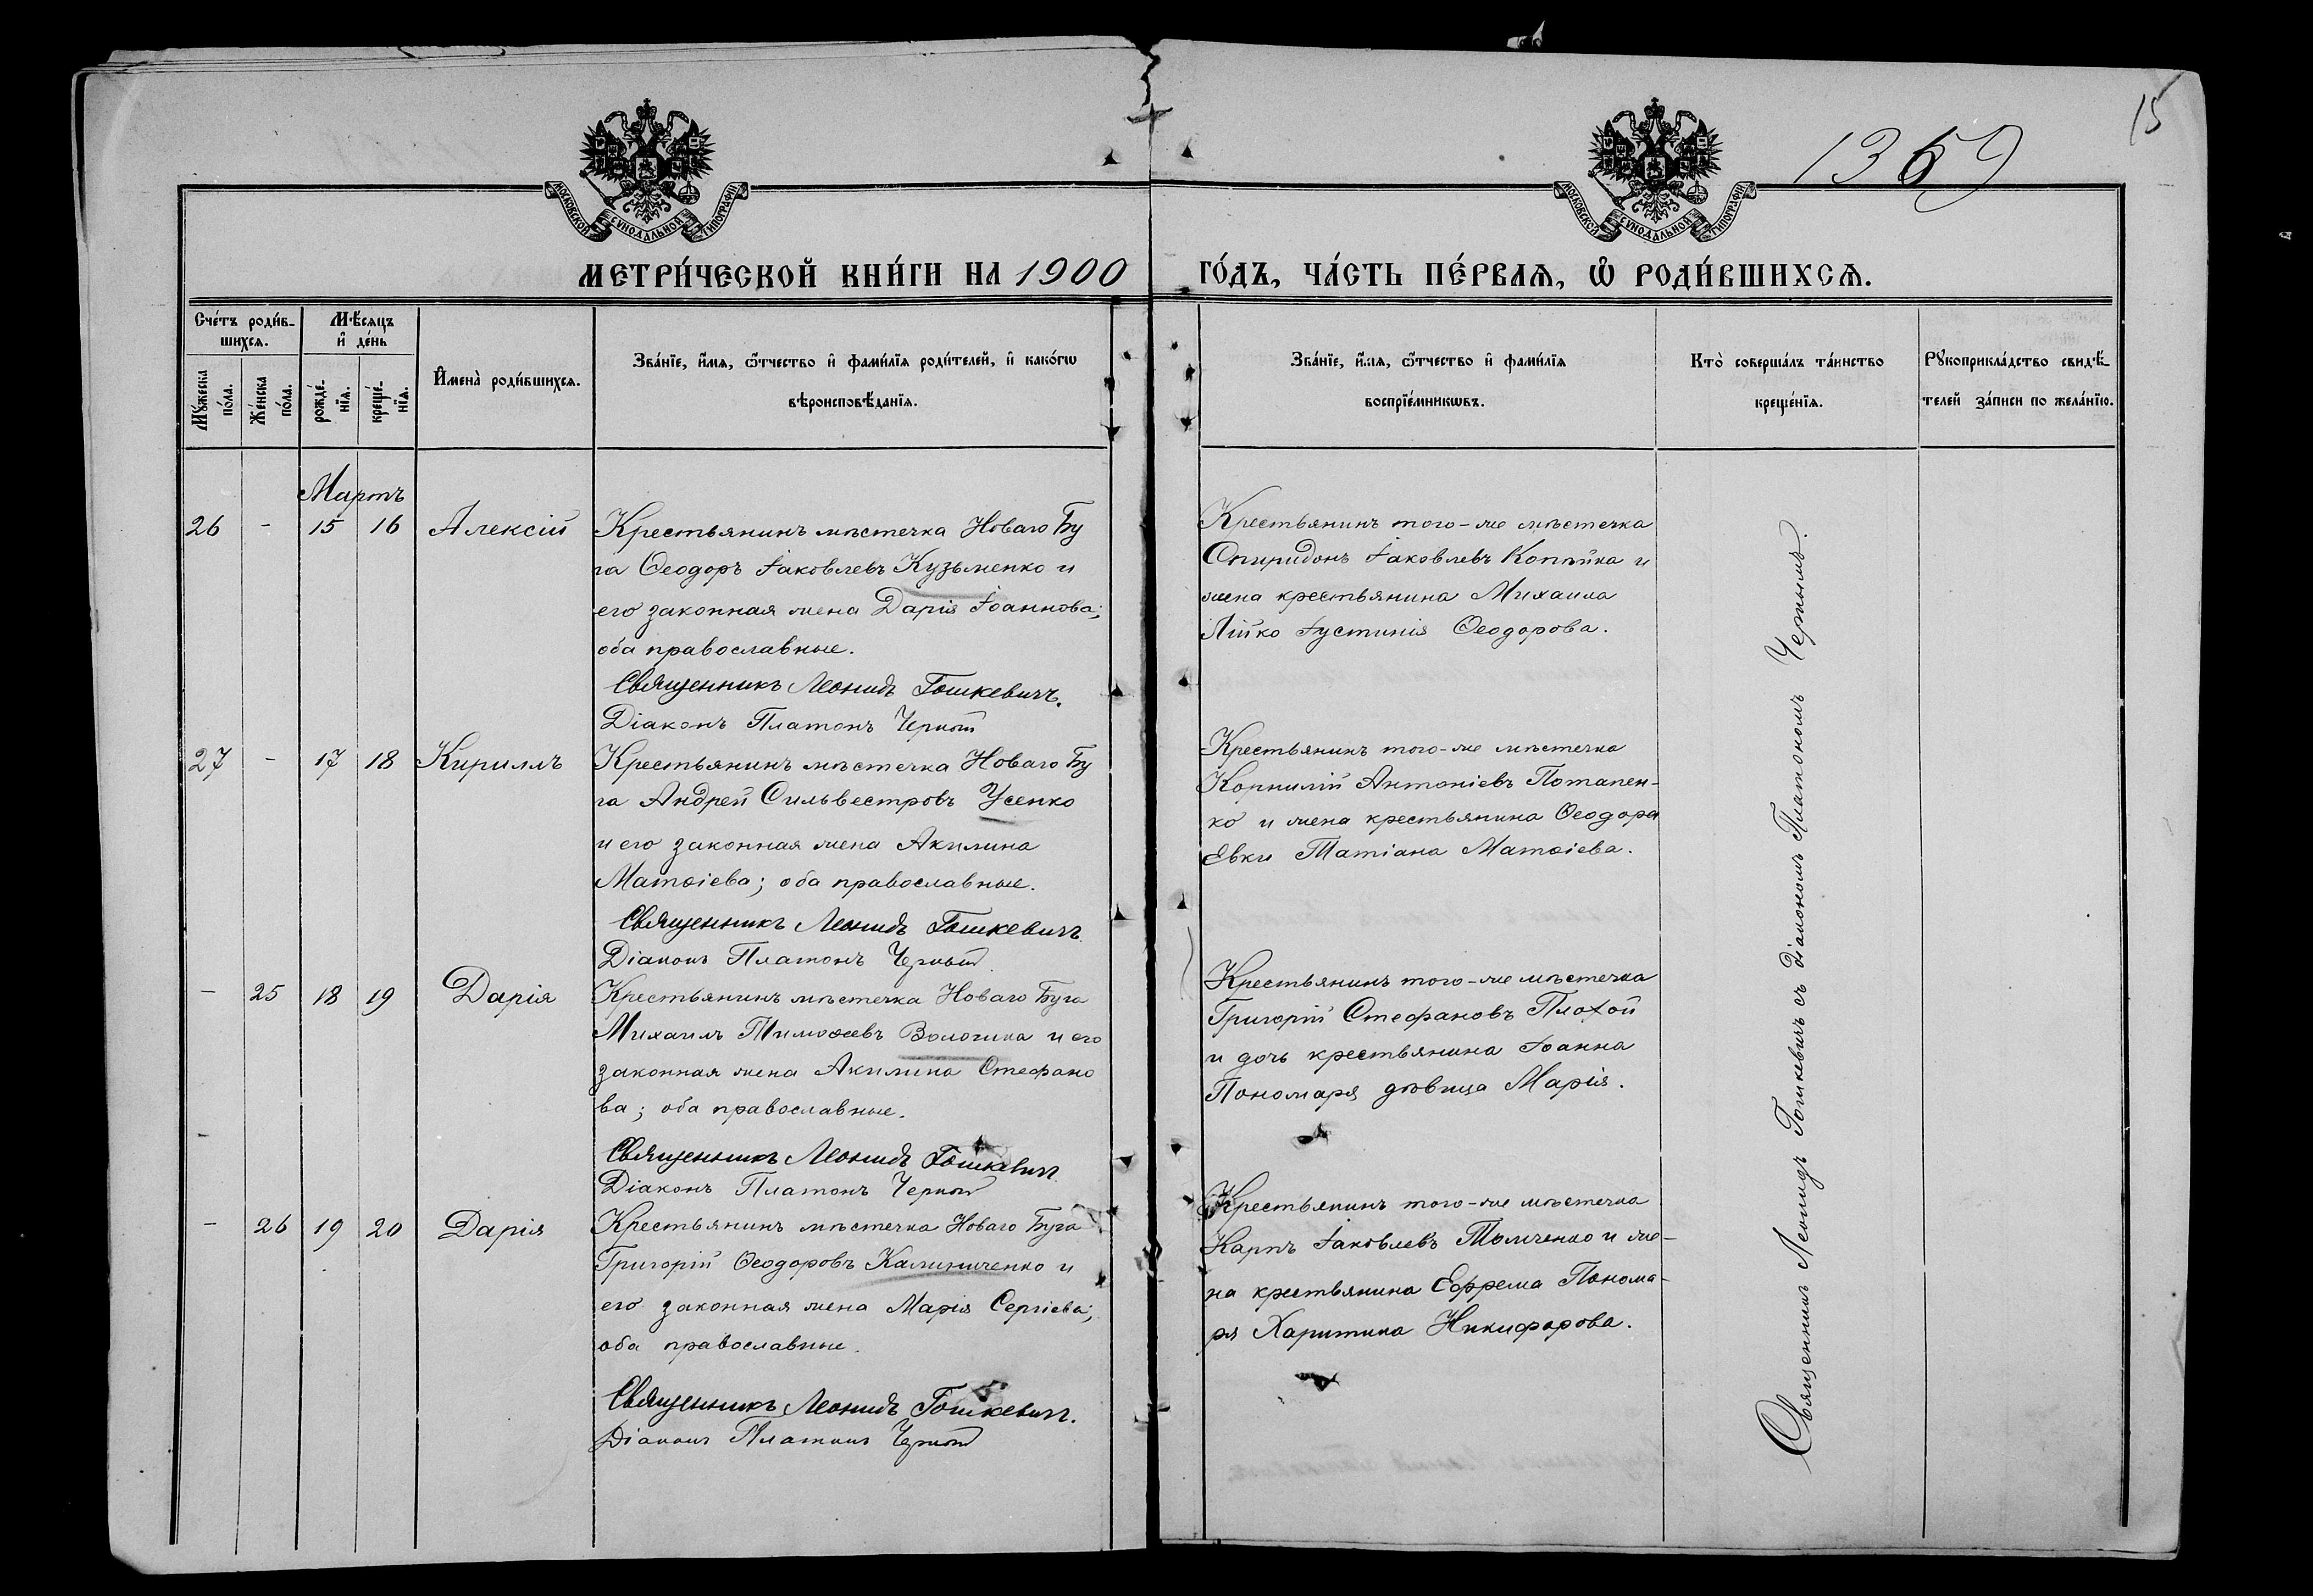 15
1369
МОСКОВСКОЙ СѴНОДАЛЬНОЙ ТИПОГРАФІИ
МОСКОВСКОЙ СѴНОДАЛЬНОЙ ТИПОГРАФІИ
МЕТРИ́ЧЕСКОЙ КНИ́ГИ НА 1900
ГО́ДЪ, ЧА́СТЬ ПЕ́РВАѦ, Ѡ҆ РОДИ́ВШИХСѦ.
Сче́тъ роди́в-
шихсѧ.
Мѣ́сѧцъ
и҆ де́нь
Мꙋ́жеска
по́ла.
Же́нска
по́ла.
рожде́-
нїѧ.
креще́-
нїѧ.
И҆мена̀ роди́вшихсѧ.
Зва́нїе, и҆́мѧ, ѻ҆́тчество и҆ фами́лїѧ роди́телей, и҆ како́гѡ
вѣроисповѣ́данїѧ.
Зва́нїе, и҆́мѧ, ѻ҆́тчество и҆ фами́лїѧ
воспрїе́мникѡвъ.
Кто̀ соверша́лъ та́инство
креще́нїѧ.
Рꙋкоприкла́дство свидѣ́-
телей за́писи по жела́нїю.
Мартъ
26 - 15 16 Алексій
Крестьянинъ мѣстечка Новаго Бу
га Ѳеодоръ Іаковлевъ Кузьменко и
его законная жена Дарія Іоаннова;
оба православные.
Священникъ Леонидъ Гошкевичъ.
Діаконъ Платонъ Черный
Крестьянинъ того-же мѣстечка
Спиридонъ Іаковлевъ Копѣйка и
жена крестьянина Михаила
Лійко Іустинія Ѳеодорова.
27 - 17 18 Кириллъ
Крестьянинъ мѣстечка Новаго Бу
га Андрей Сильвестровъ Усенко
и его законная жена Акилина
Матѳіева; оба православные.
Священникъ Леонидъ Гошкевичъ
Діаконъ Платонъ Черный
Крестьянинъ того-же мѣстечка
Корнилій Антоніевъ Потапен-
ко и жена крестьянина Ѳеодора
Евки Татіана Матѳіева.
- 25 18 19 Дарія
Крестьянинъ мѣстечка Новаго Буга
Михаилъ Тимоѳеевъ Вологина и его
законная жена Акилина Стефано
ва; оба православные.
Священникъ Леонидъ Гошкевич
Діаконъ Платонъ Черный
Крестьянинъ того-же мѣстечка
Григорій Стефановъ Плохой
и дочь крестьянина Іоанна
Пономаря дѣвица Марія.
- 26 19 20 Дарія
Крестьянинъ мѣстечка Новаго Буга
Григорій Ѳеодоровъ Калиниченко и
его законная жена Марія Сергіева;
оба православные.
Священникъ Леонидъ Гошкевич.
Діаконъ Платонъ Черный
Крестьянинъ того-же мѣстечка
Карпъ Іаковлевъ Томченко и же-
на крестьянина Ефрема Понома-
ря Харитина Никифорова.
Священникъ Леонидъ Гошкевичъ съ діакономъ Платономъ Чернымъ.